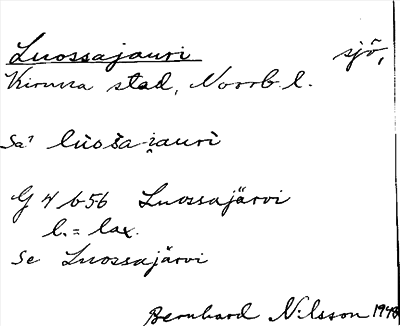 Luossajauri sjö,
Kiruna stad, Norrb. l.
Sa? lu̇oša-i̯aurì
G 4 b56 Luossajärvi
l. = lax.
Se Luossajärvi
Bernhard Nilsson